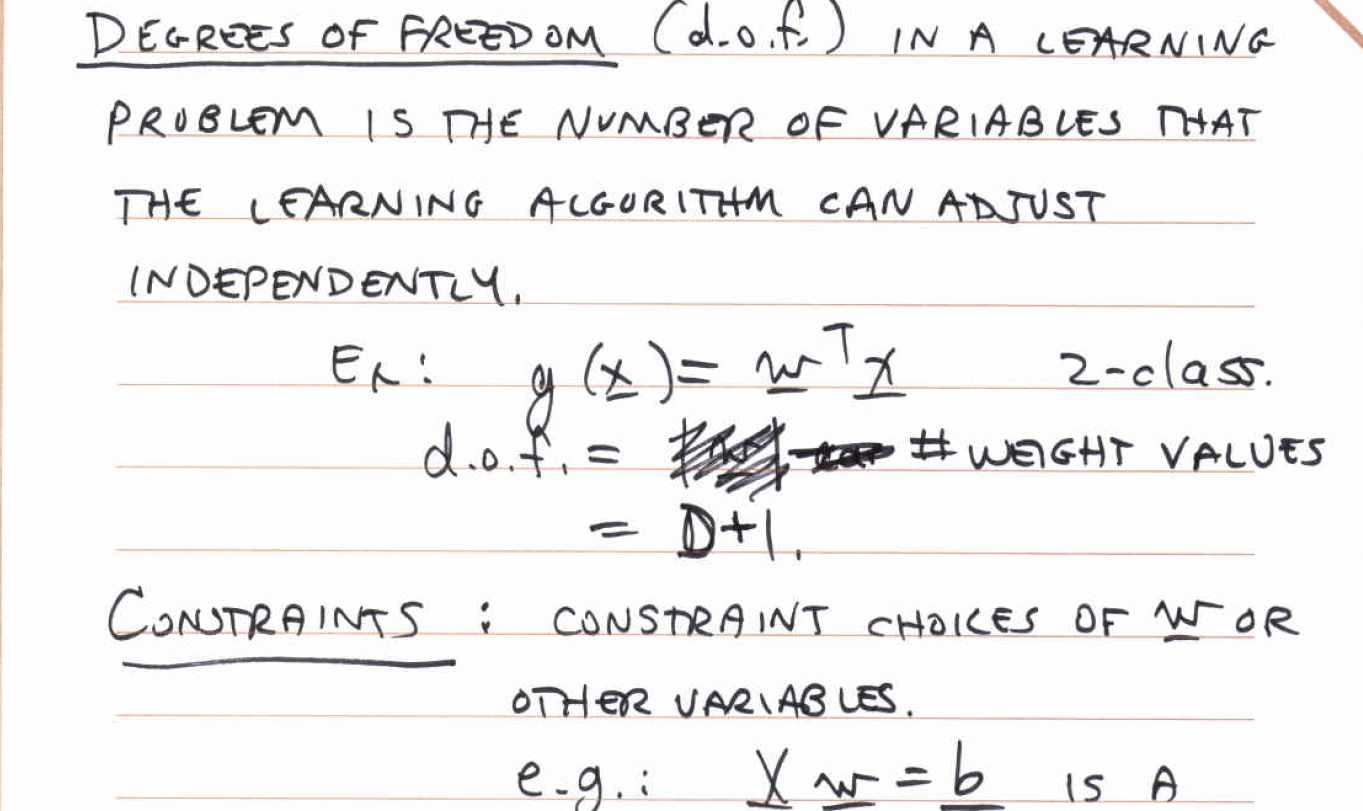 DEGREES OF FREEDOM (d.o.f.) IN A LEARNING
PROBLEM IS THE NUMBER OF VARIABLES THAT
THE LEARNING ALGORITHM CAN ADJUST
INDEPENDENTLY.
Ex: g(x) = w^T x 2-class.
d.o.f. = # WEIGHT VALUES
= D+1.
CONSTRAINTS : CONSTRAINT CHOICES OF w OR
OTHER VARIABLES.
e.g.: X w = b IS A